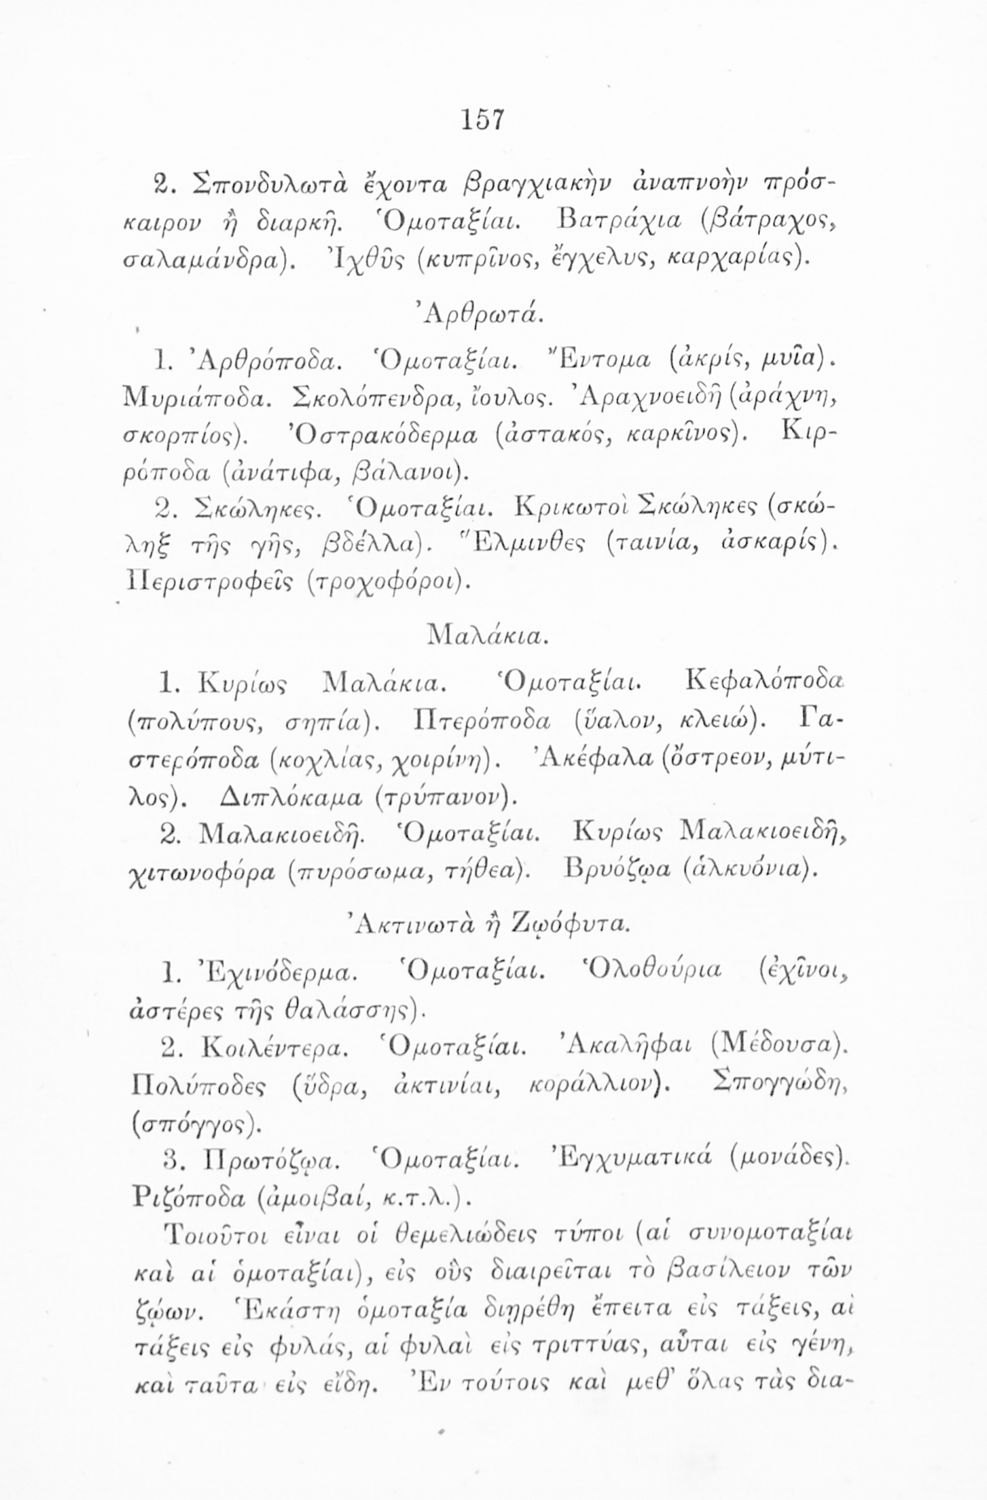 157
2. Σπονδυλωτὰ ἔχοντα βραγχιακὴν ἀναπνοὴν πρόσ-
καιρον ἢ διαρκῆ. Ὁμοταξίαι. Βατράχια (βάτραχος,
σαλαμάνδρα). Ἰχθῦς (κυπρῖνος, ἔγχελυς, καρχαρίας).
Ἀρθρωτά.
1. Ἀρθρόποδα. Ὁμοταξίαι. Ἔντομα (ἀκρίς, μυῖα).
Μυριάποδα. Σκολόπενδρα, ἴουλος. Ἀραχνοειδῆ (ἀράχνη,
σκορπίος). Ὀστρακόδερμα (ἀστακός, καρκῖνος). Κιρ-
ρόποδα (ἀνάτιφα, βάλανοι).
2. Σκώληκες. Ὁμοταξίαι. Κρικωτοὶ Σκώληκες (σκώ-
ληξ τῆς γῆς, βδέλλα). Ἕλμινθες (ταινία, ἀσκαρίς).
Περιστροφεῖς (τροχοφόροι).
Μαλάκια.
1. Κυρίως Μαλάκια. Ὁμοταξίαι. Κεφαλόποδα
(πολύπους, σηπία). Πτερόποδα (ὕαλον, κλειώ). Γα-
στερόποδα (κοχλίας, χοιρίνη). Ἀκέφαλα (ὄστρεον, μύτι-
λος). Διπλόκαμα (τρύπανον).
2. Μαλακιοειδῆ. Ὁμοταξίαι. Κυρίως Μαλακιοειδῆ,
χιτωνοφόρα (πυρόσωμα, τήθεα). Βρυόζῳα (ἀλκυόνια).
Ἀκτινωτὰ ἢ Ζῳόφυτα.
1. Ἐχινόδερμα. Ὁμοταξίαι. Ὁλοθούρια (ἐχῖνοι,
ἀστέρες τῆς θαλάσσης).
2. Κοιλέντερα. Ὁμοταξίαι. Ἀκαλῆφαι (Μέδουσα).
Πολύποδες (ὕδρα, ἀκτινίαι, κοράλλιον). Σπογγώδη,
(σπόγγος).
3. Πρωτόζῳα. Ὁμοταξίαι. Ἐγχυματικά (μονάδες).
Ριζόποδα (ἀμοιβαί, κ.τ.λ.).
Τοιοῦτοι εἶναι οἱ θεμελιώδεις τύποι (αἱ συνομοταξίαι
καὶ αἱ ὁμοταξίαι), εἰς οὓς διαιρεῖται τὸ βασίλειον τῶν
ζῴων. Ἑκάστη ὁμοταξία διῃρέθη ἔπειτα εἰς τάξεις, αἱ
τάξεις εἰς φυλάς, αἱ φυλαὶ εἰς τριττύας, αὗται εἰς γένη,
καὶ ταῦτα εἰς εἴδη. Ἐν τούτοις καὶ μεθ' ὅλας τὰς δια-